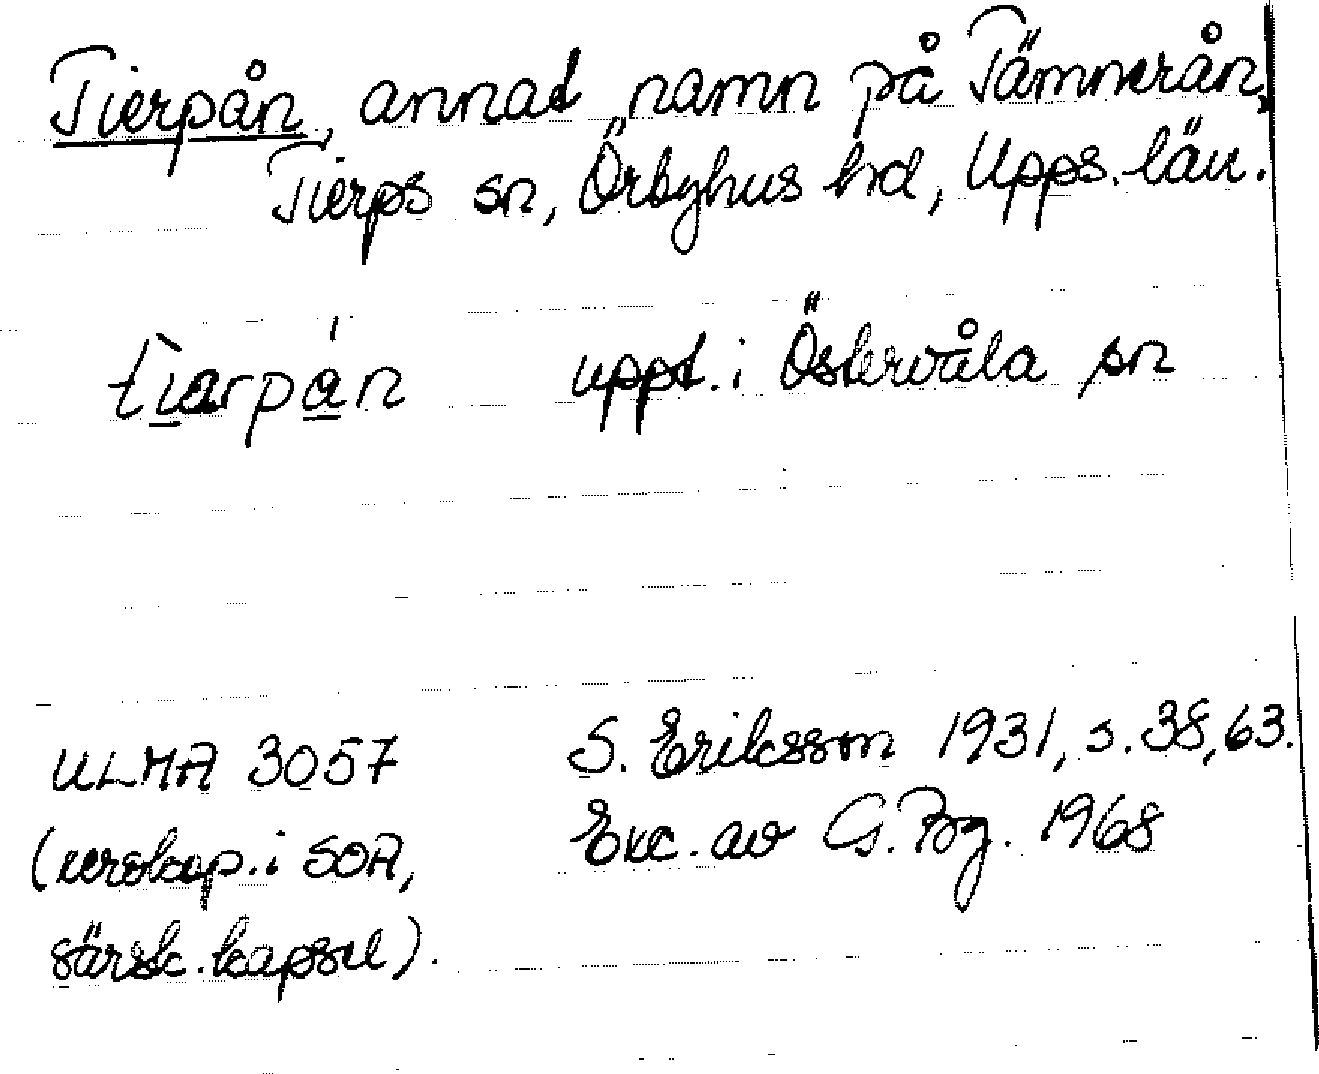 Tierpån, annat namn på Tämnerån,
Tierps sn, Örbyhus hd, Upps. län.
tiarpån uppt. i Östervåla sn
ULMA 3057 S. Eriksson 1931, s. 38, 63.
(xerokop. i SOA, Exc. av G. Bg. 1968
särsk. kapsel).